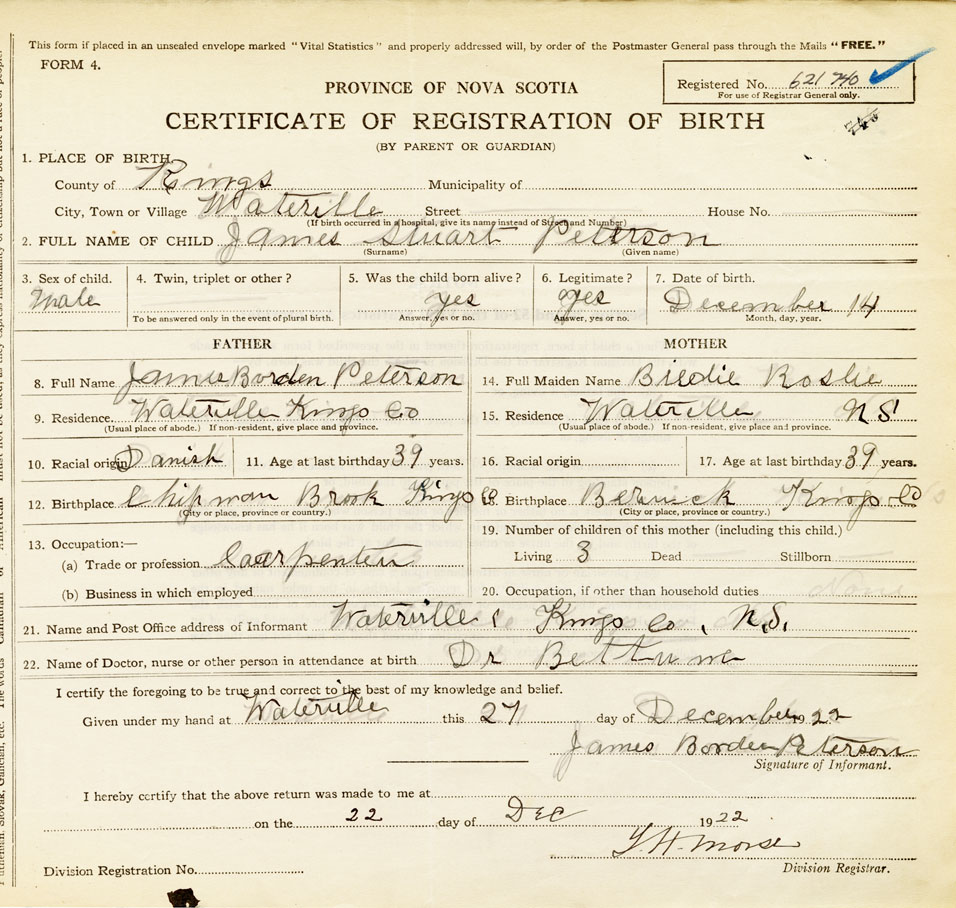 This form if placed in an unsealed envelope marked "Vital Statistics" and properly addressed will, by order of the Postmaster General pass through the Mails "FREE."
FORM 4.
Registered No. 621740
For use of Registrar General only.
PROVINCE OF NOVA SCOTIA
CERTIFICATE OF REGISTRATION OF BIRTH
(BY PARENT OR GUARDIAN)
1. PLACE OF BIRTH
County of Kings Municipality of
City, Town or Village Waterville Street House No.
(If birth occurred in a hospital, give its name instead of Street and Number)
2. FULL NAME OF CHILD James Stuart Peterson
(Surname) (Given name)
3. Sex of child. 4. Twin, triplet or other? 5. Was the child born alive? 6. Legitimate? 7. Date of birth.
Male yes yes December 14
To be answered only in the event of plural birth. Answer, yes or no. Answer, yes or no. Month, day, year.
FATHER MOTHER
8. Full Name James Borden Peterson 14. Full Maiden Name Birdie
9. Residence Waterville Kings Co 15. Residence Waterville N S
(Usual place of abode.) If non-resident, give place and province. (Usual place of abode.) If non-resident, give place and province.
10. Racial origin Danish 11. Age at last birthday 39 years. 16. Racial origin 17. Age at last birthday 39 years.
12. Birthplace Chipman Brook Kings Co 18. Birthplace Berwick Kings Co
(City or place, province or country.) (City or place, province or country.)
19. Number of children of this mother (including this child.)
13. Occupation:—
(a) Trade or profession Carpenter Living 3 Dead Stillborn
(b) Business in which employed 20. Occupation, if other than household duties None
21. Name and Post Office address of Informant Waterville Kings Co, N.S.
22. Name of Doctor, nurse or other person in attendance at birth Dr Bethune
I certify the foregoing to be true and correct to the best of my knowledge and belief.
Given under my hand at Waterville this 27 day of December 1922
James Borden Peterson
Signature of Informant.
I hereby certify that the above return was made to me at
on the 22 day of Dec 1922
Morse
Division Registration No. Division Registrar.